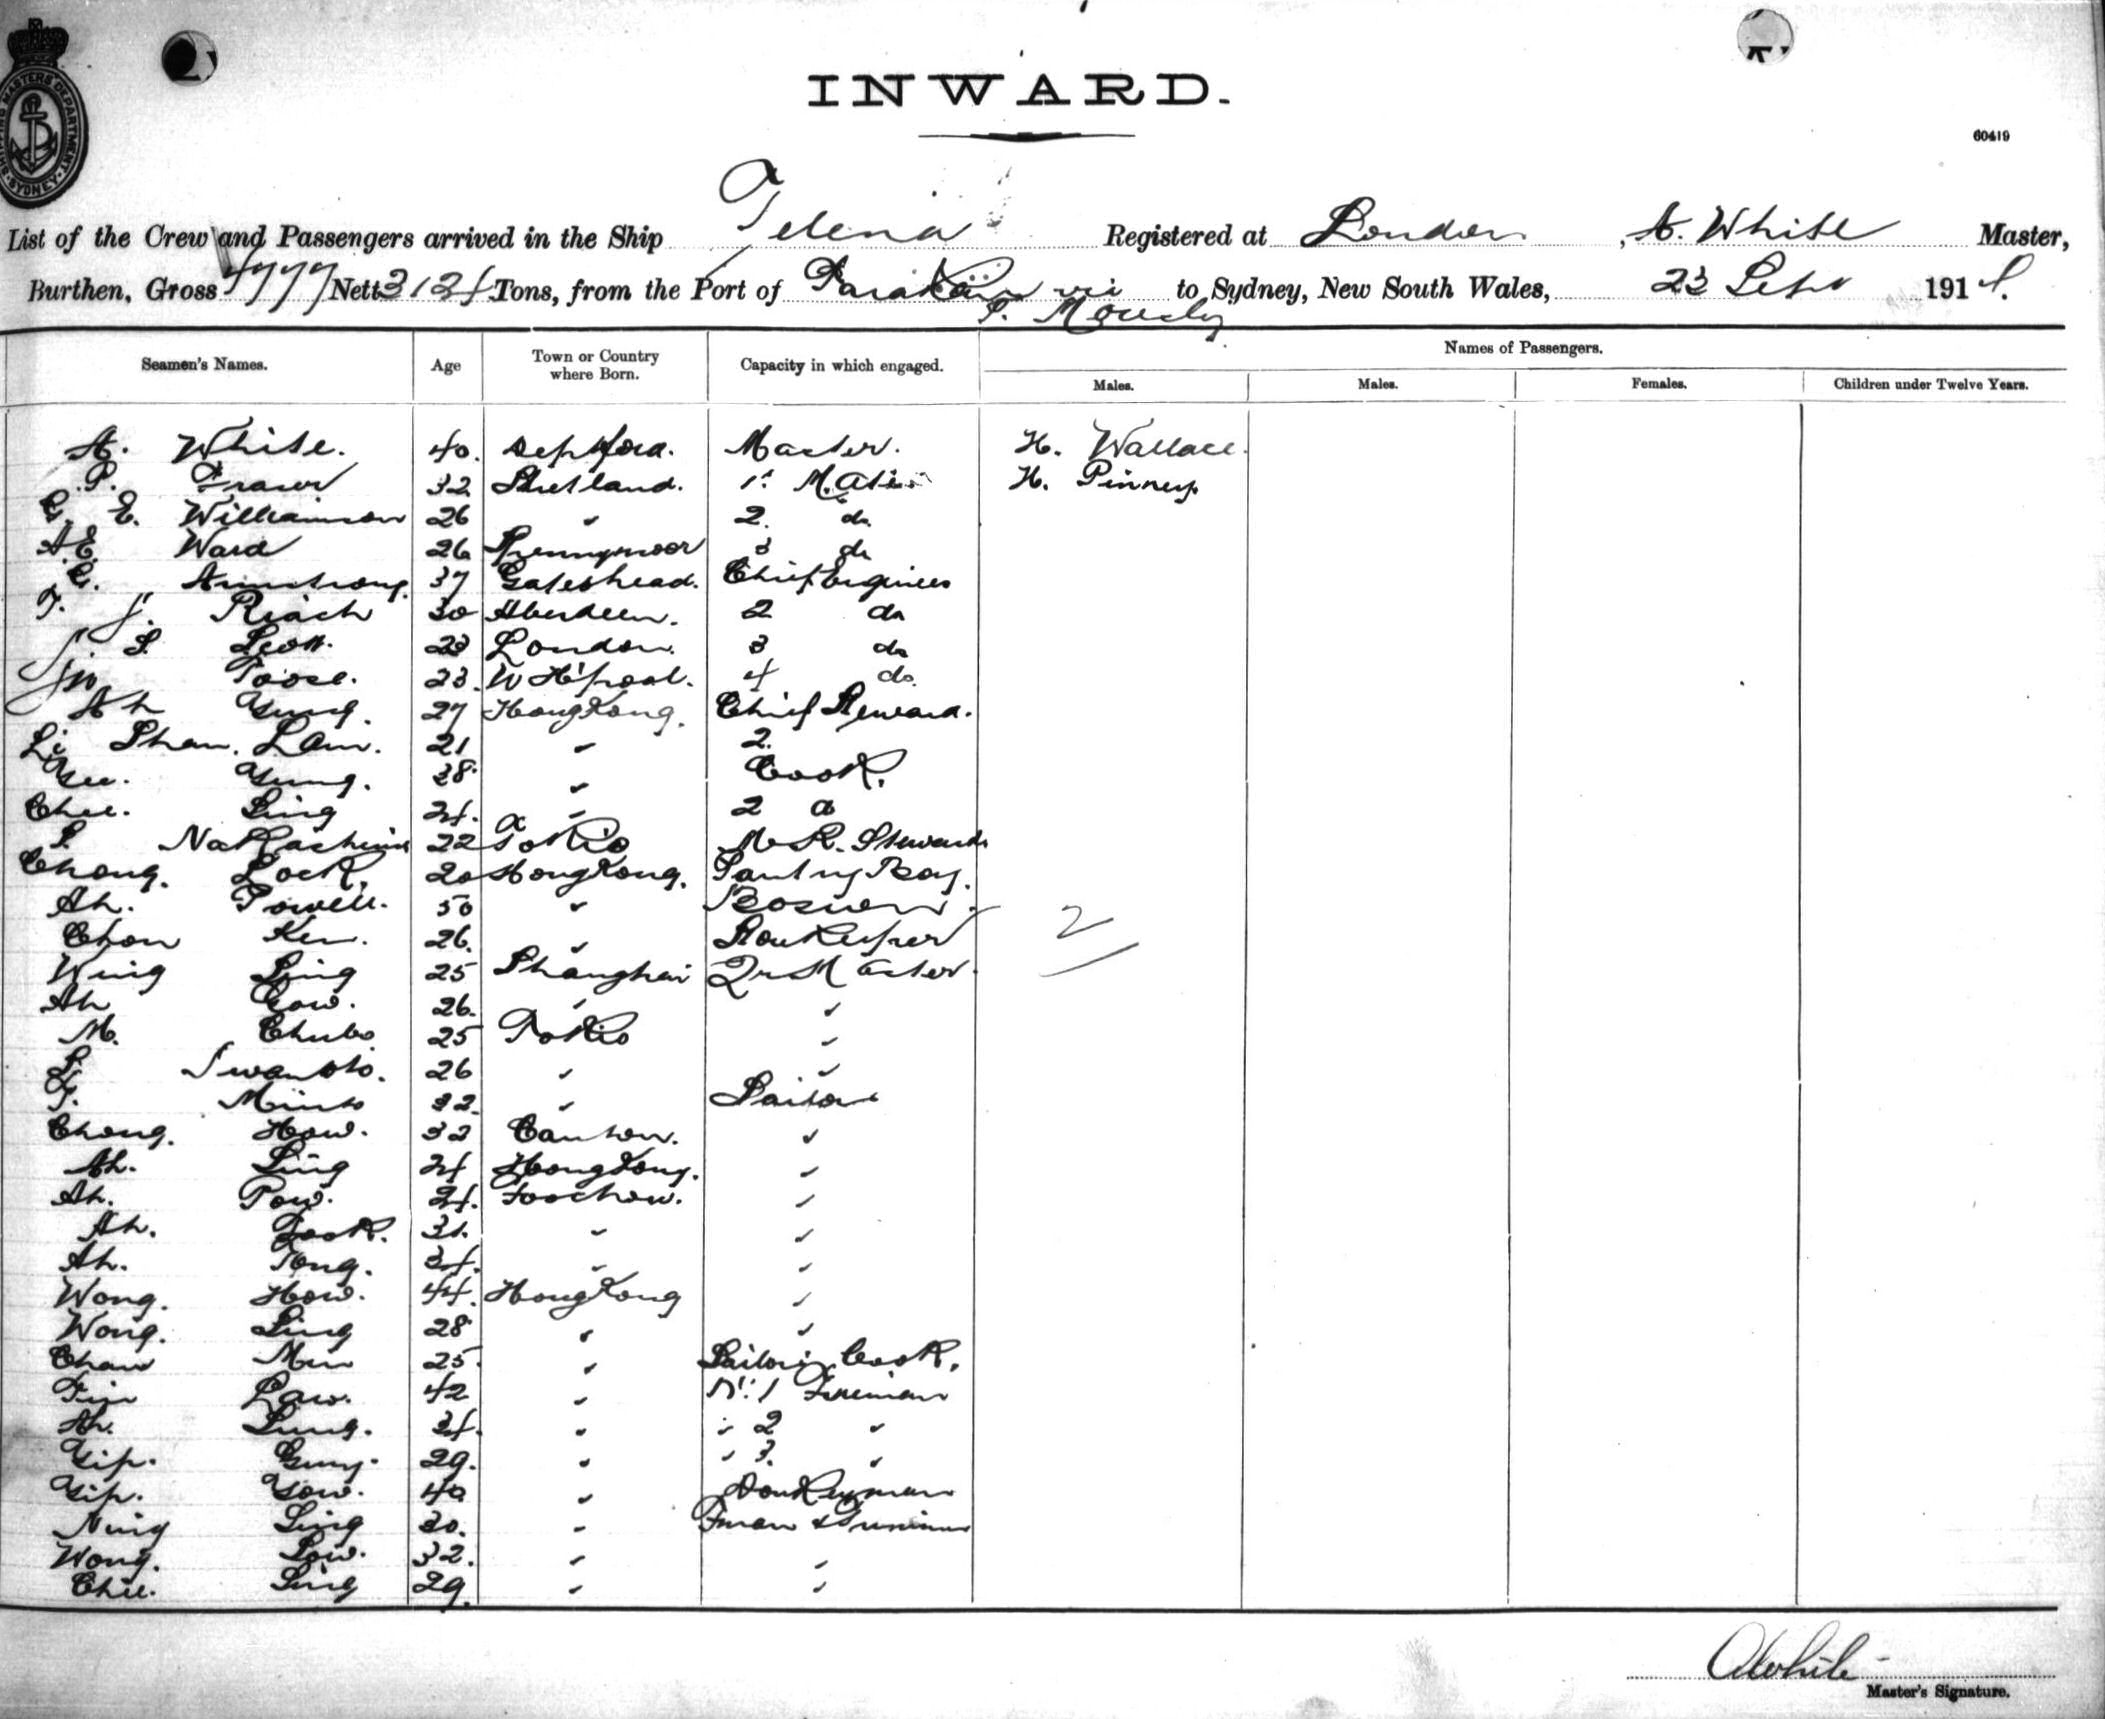 SHIPPING MASTERS DEPARTMENT SYDNEY
INWARD.
60419
List of the Crew and Passengers arrived in the Ship Telena Registered at London, A. White Master,
Burthen, Gross 4777 Nett 3124 Tons, from the Port of Tarakan via to Sydney, New South Wales, 23 Sept 191
P. Moresby
Seamen's Names. Age Town or Country where Born. Capacity in which engaged. Names of Passengers.
Males. Males. Females. Children under Twelve Years.
A. White. 40. Deptford. Master. H. Wallace.
P. Fraser 32 Shetland. 1st Mate H. Pinney.
G. E. Williamson 26 " 2. do
A.E. Ward 26 Spennymoor 3 do
G. Armstrong. 37 Gateshead. Chief Engineer
T. J. Riach 30 Aberdeen. 2 do
J S. Scott. 23 London. 3 do
J W Toose. 23. W H'pool. 4 do.
Ah Yung. 27 Hong Kong. Chief Steward.
Li Shan. Lam. 21 " 2.
Yee. Yung. 38 " Cook.
Chee. Ling 24. " 2 do
S. Nakashima 22 Tokio M. R. Steward
Chong. Lock. 20 Hong Kong. Pantry Boy.
Ah. Powell. 50 " Boswen 2
Chon Ken. 26. " Storekeeper
Wing Ling 25 Shanghai Qr Master.
Ah Gow. 26. " "
M. Chubo 25 Tokio "
S. Iwamoto. 26 " "
T. 32. " Sailor
Chong. How. 32 Canton. "
Ah. Ling 24 Hong Kong. "
Ah. Pow. 24. Foochow. "
Ah. 31. " "
Ah. Tong. 34. " "
Wong. How. 44. Hong Kong "
Wong. Ling 28 " "
Chaw Min 25. " Sailors Cook.
Law. 42 " No. 1 Fireman
Ah. Lung. 34. " " 2 "
Yip. 29. " " 3. "
Yip. Yow. 40 " Donkeyman
Ning Ling 30. " Fman & Trimmer
Wong. Low. 32. " "
Chee. Ling 29. " "
A White
Master's Signature.